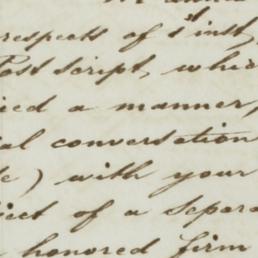 respects of 1st inst,
Postscript, whic
ied a manner,
al conversation
e) with your
ject of a separa
honored firm